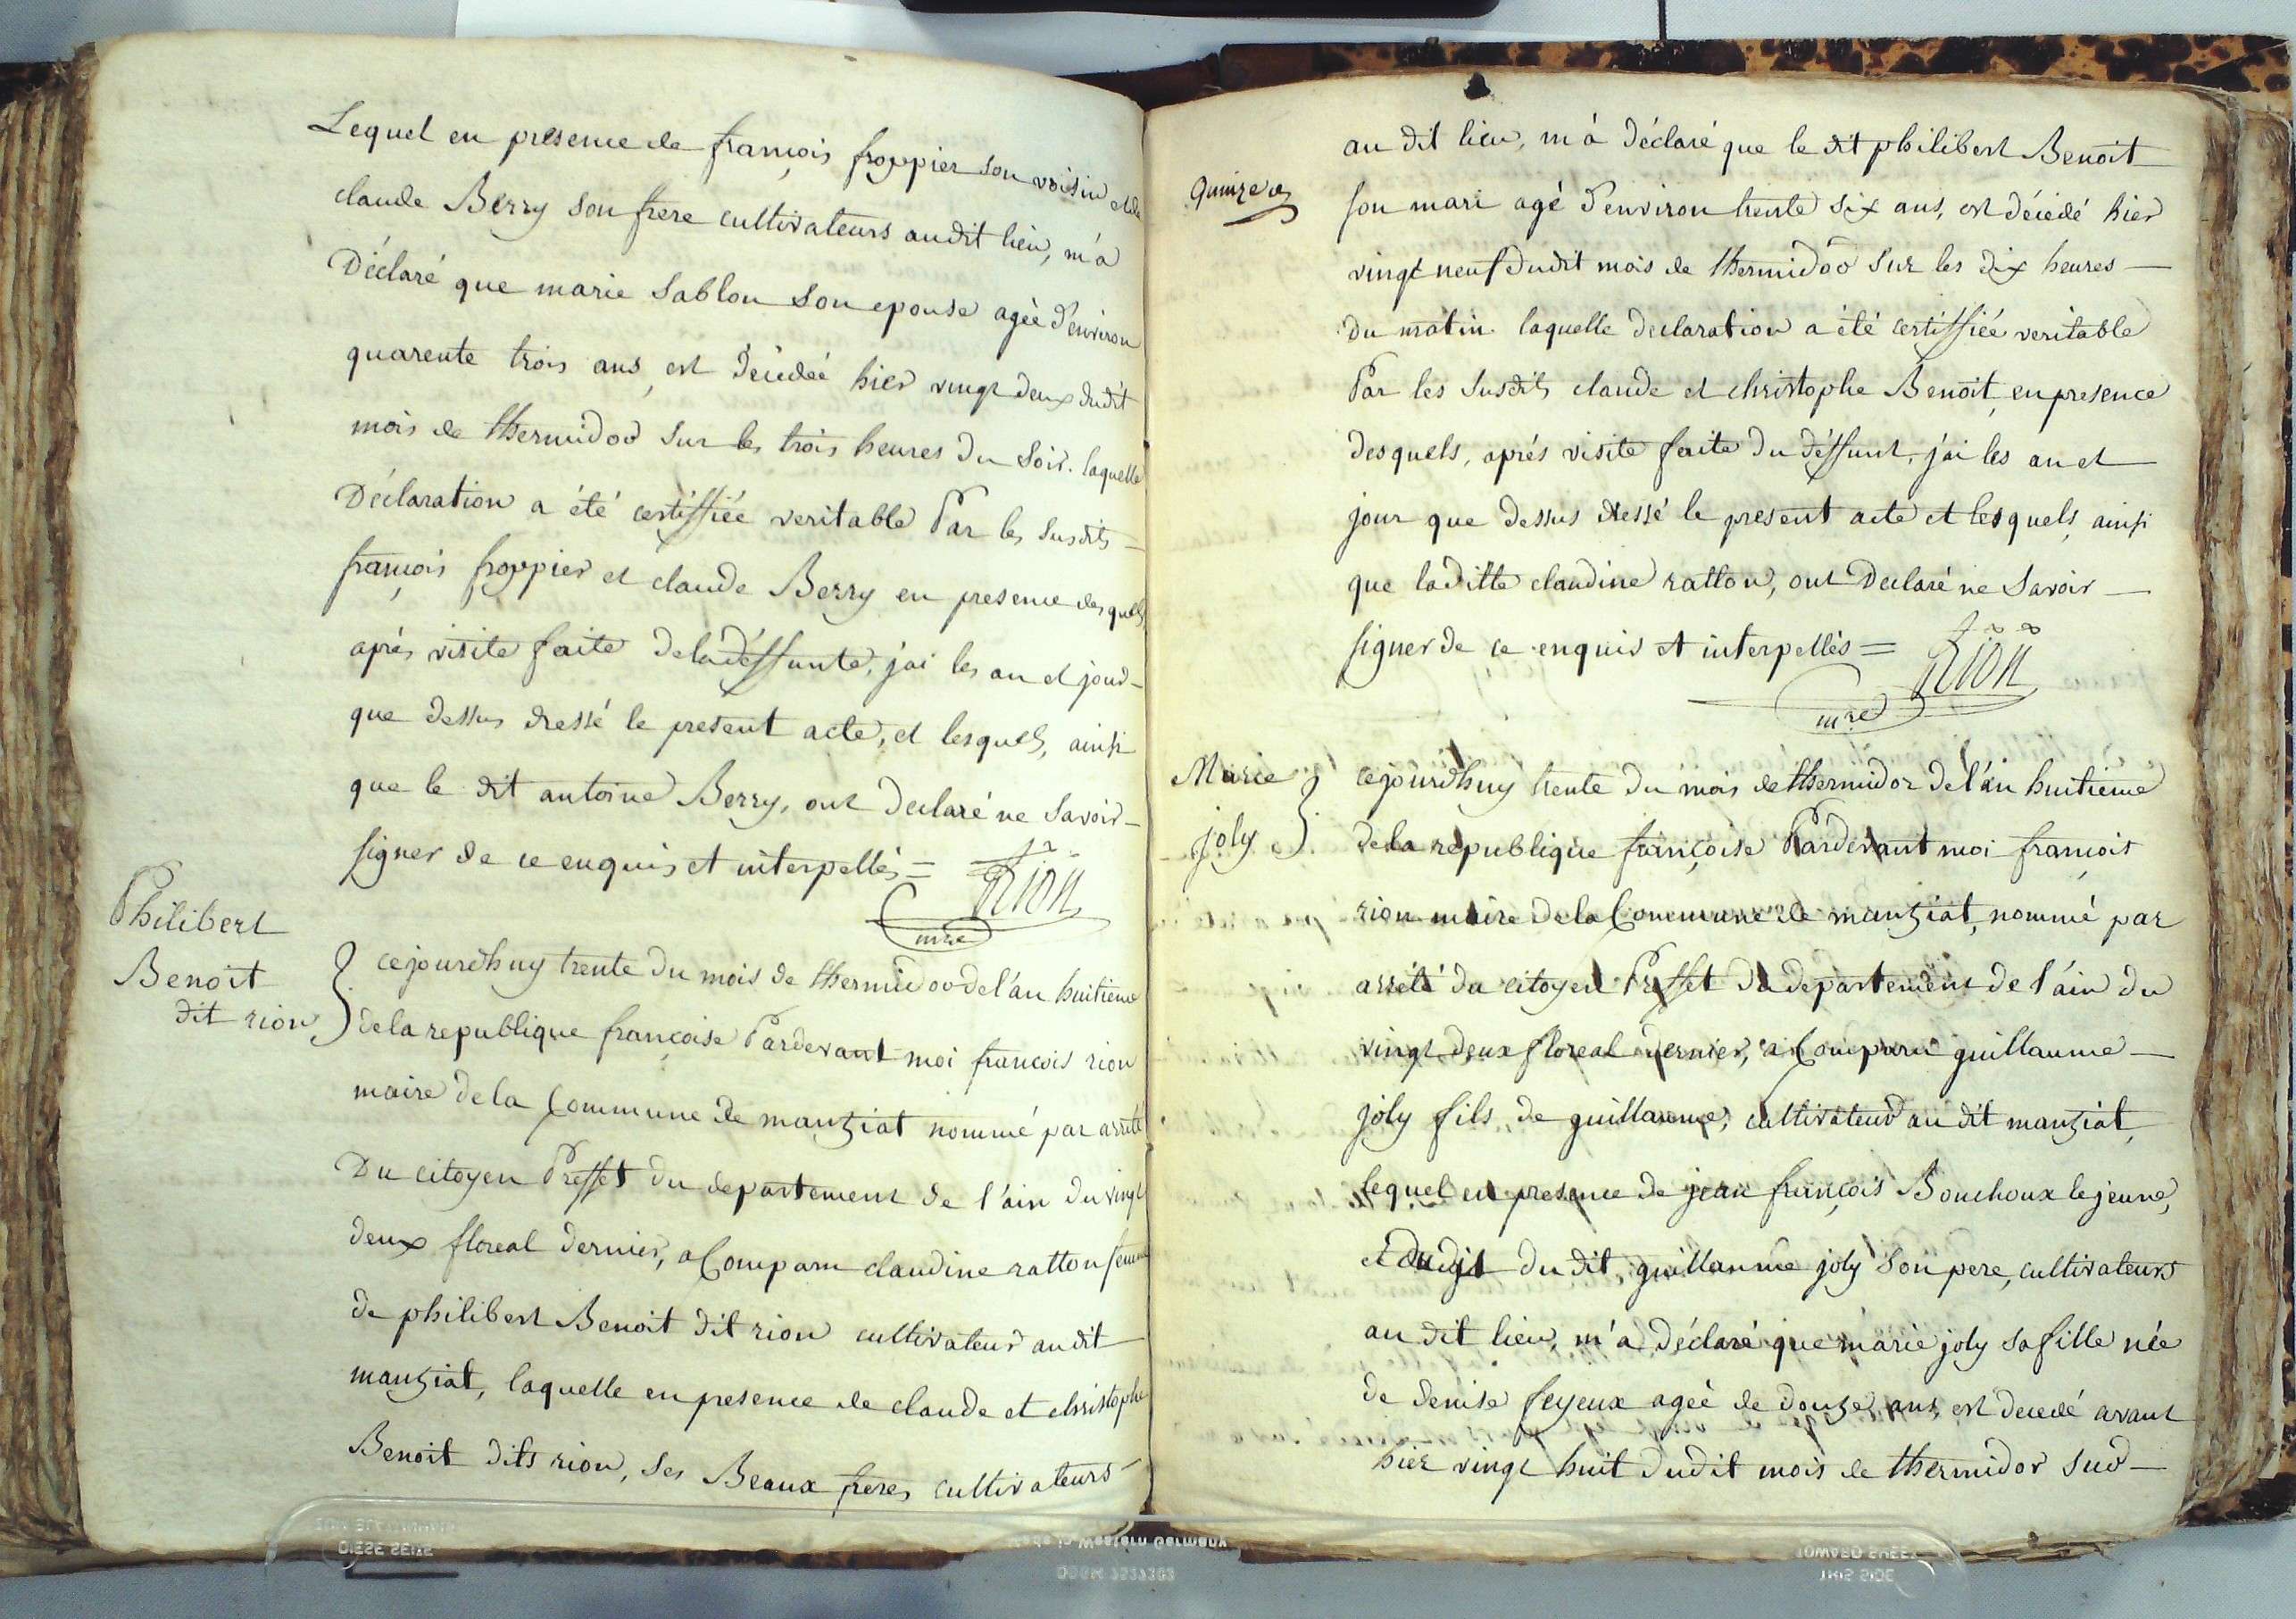 Lequel en presence de françois froppier son voisin et de
claude Berry son frere cultivateurs audit lieu, m'a
Déclaré que marie Sablon son epouse agée d'environ
quarente trois ans est décédéé hier vingt deux dudit
mois de thermidor sur les trois heures du soir. laquelle
Déclaration a été certiffiée veritable Par les susdits
françois froppier et claude Berry en presence desquels
aprés visite faite de la déffunte, j'ai les an et jour
que dessus dressé le present acte, et lesquels, ainsi
que le dit antoine Berry, ont declaré ne savoir
signer de ce enquis et interpellés =
Rion
mre
Philibert
Benoit
dit rion
cejourd'huy trente du mois de thermidor de l'an huitieme
de la republique françoise Pardevant moi francois rion
maire de la Commune de manziat nommé par arrêté
Du citoyen Preffet du departement de l'ain du vingt
deux floreal dernier, a Comparu claudine ratton femme
de philibert Benoit dit rion cultivateur audit
manziat, laquelle en presence de claude et christophe
Benoit dits rion, ses Beaux freres cultivateurs
au dit lieu, m'à déclaré que le dit philibert Benoit
quinze
son mari agé d'environ trente six ans, est décédé hier
vingt neuf dudit mois de thermidor sur les dix heures
du matin. laquelle declaration a été certiffiée veritable
Par les susdits claude et christophe Benoit, en presence
desquels, aprés visite faite du déffunt, j'ai les an et
jour que dessus dressé le present acte et lesquels, ainsi
que laditte claudine ratton, ont Declaré ne savoir
signer de ce enquis et interpellés =
Rion
mre
Marie
joly
cejourd'huy trente du mois de thermidor de l'an huitieme
de la republique françoise Pardevant moi françois
rion maire de la Commune de manziat, nommé par
arrêté du citoyen Preffet du departement de l'ain du
vingt deux floreal dernier, a Comparu guillaume
joly fils de guillaume, cultivateur au dit manziat,
lequel en presence de jean françois Bouchoux le jeune,
et du dit guillaume joly son pere, cultivateurs
au dit lieu, m'a déclaré que marie joly sa fille née
de denise feyeux agéé de douze ans, est decedé avant
hier vingt huit dudit mois de thermidor sur